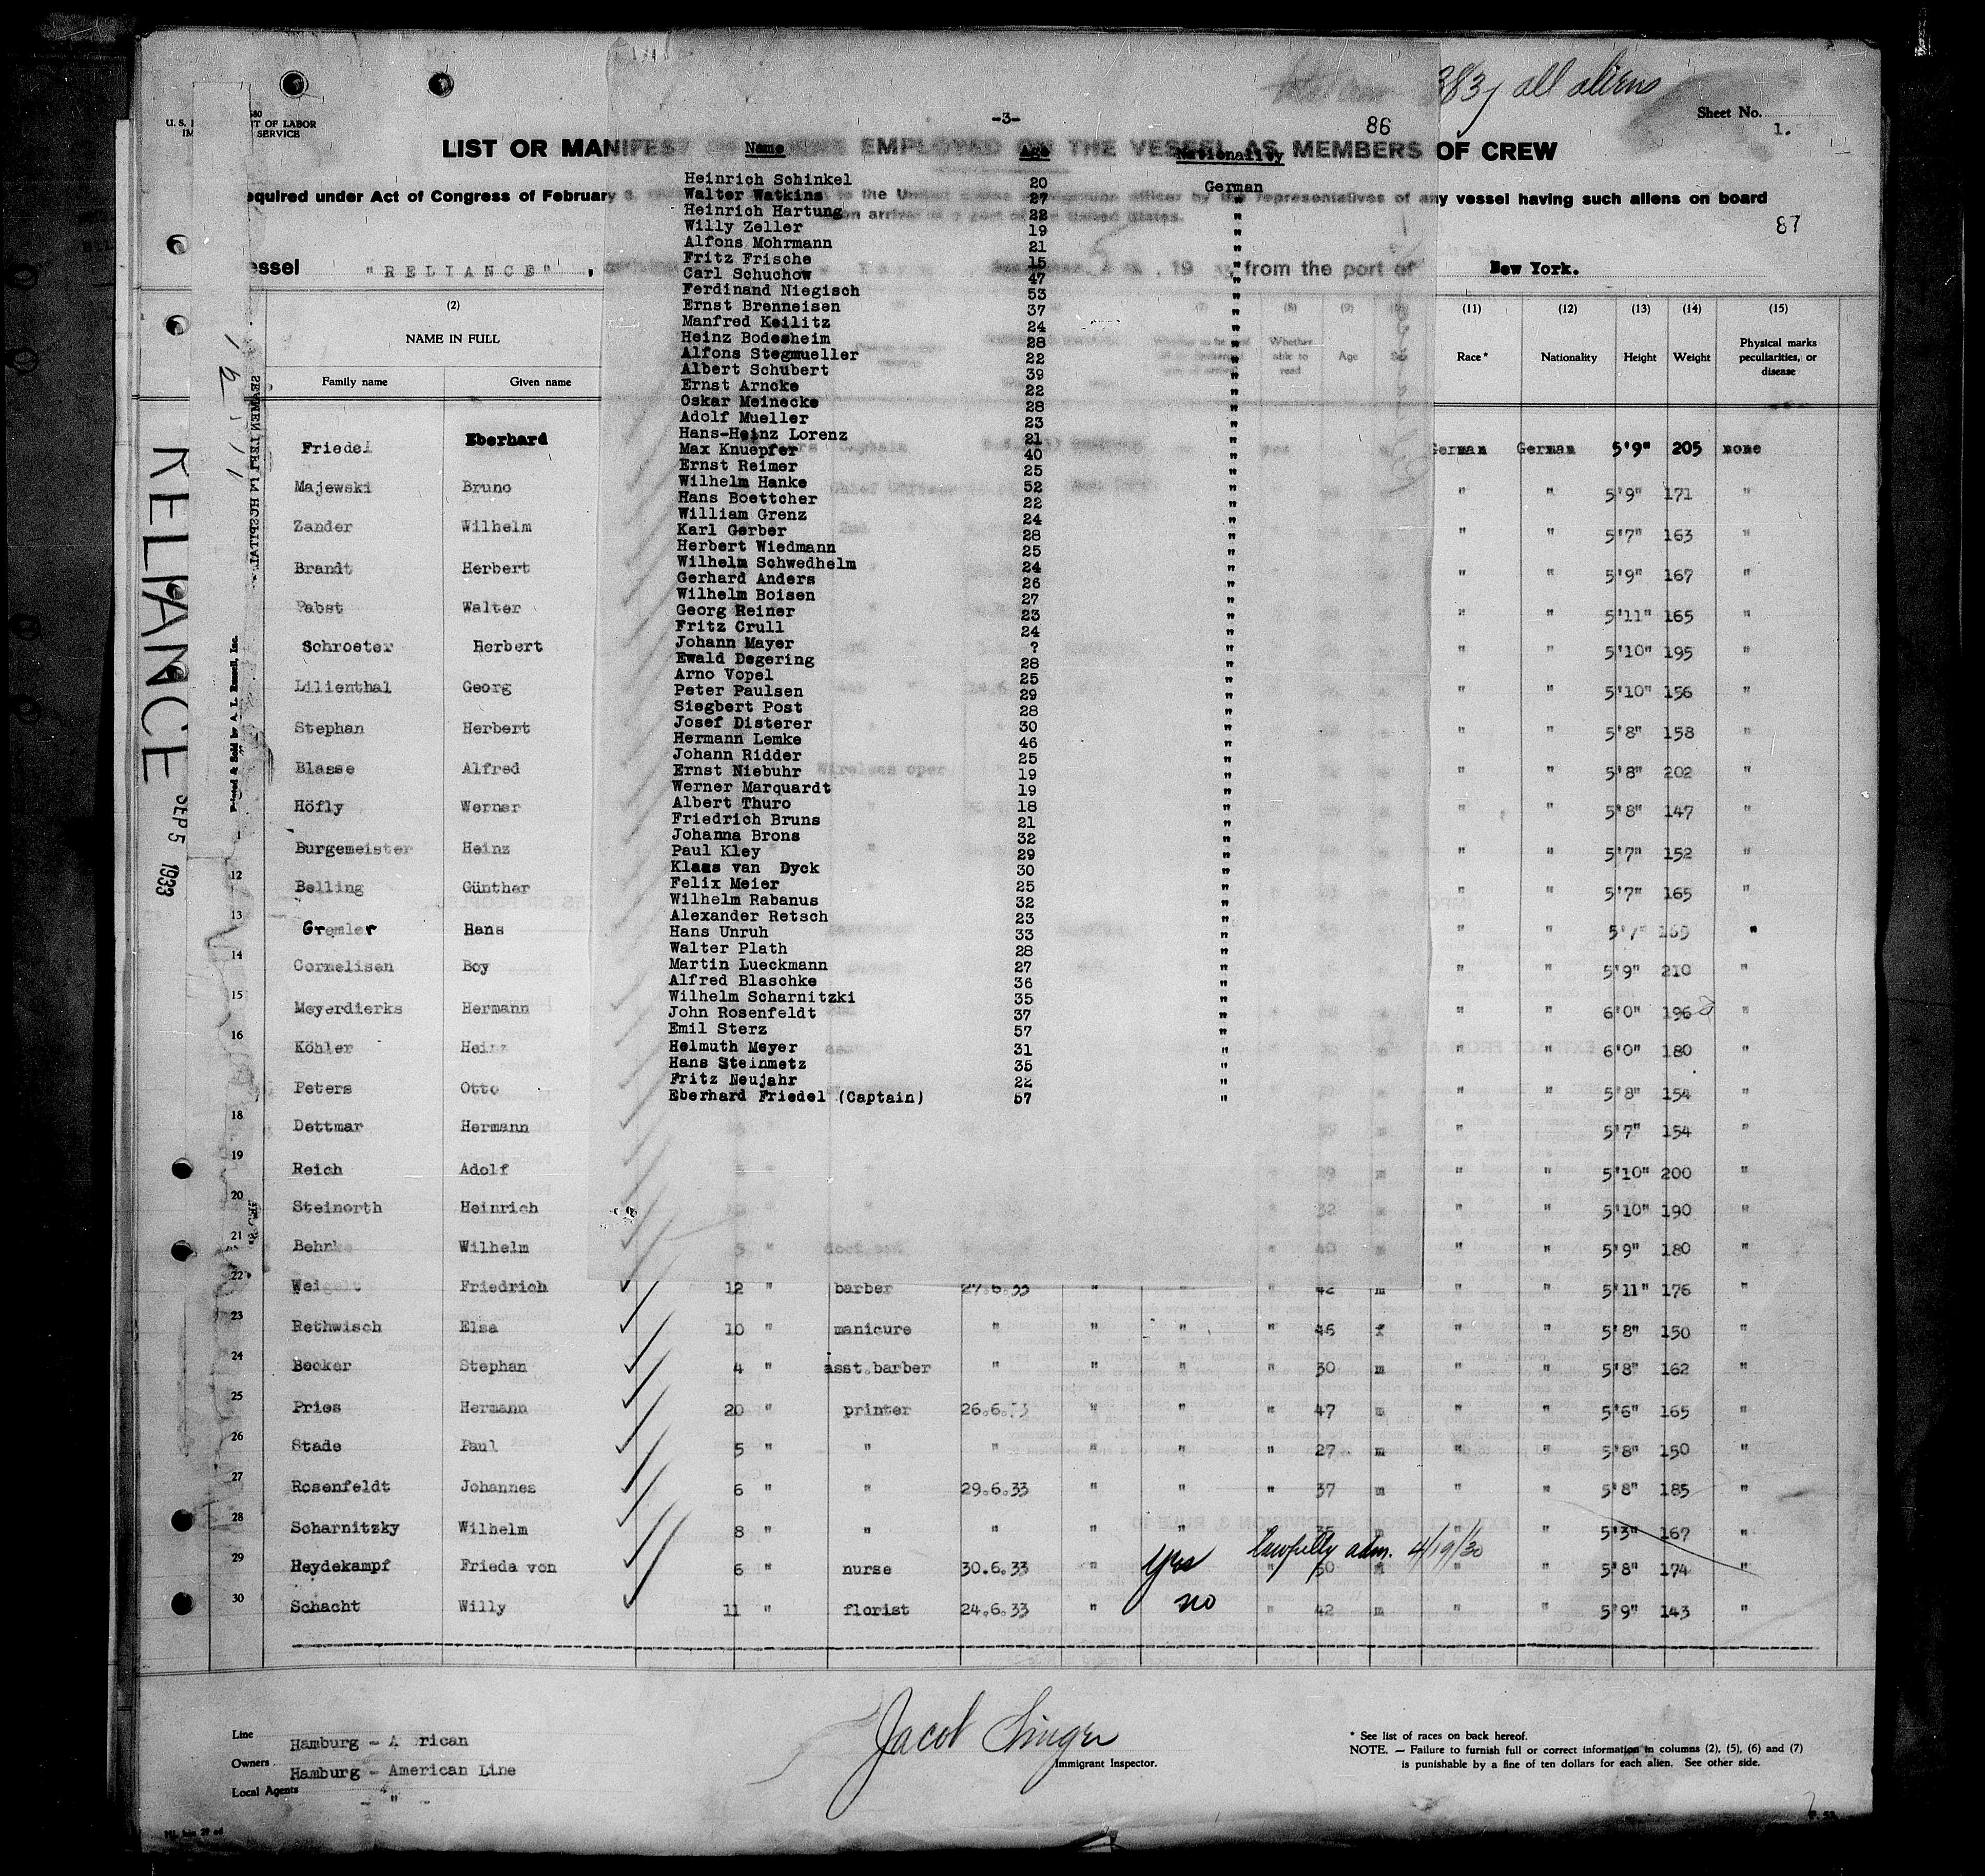 383 all aliens
Sheet No. 1.
-3-
86
LIST OR MANIFEST EMPLOYED THE VESSEL AS MEMBERS OF CREW
equired under Act of Congress of February to the United officer by the representatives of any vessel having such aliens on board
on arrival at a port of the United States.
87
essel "RELIANCE", 19 from the port of New York.
U. S. T OF LABOR
SERVICE
RELIANCE
SEP 5 1933
Printed & Sold by A. L. Russell, Inc.
Name Age Nationality
Heinrich Schinkel 20 German
Walter Watkins 27 "
Heinrich Hartung 22 "
Willy Zeller 19 "
Alfons Mohrmann 21 "
Fritz Frische 15 "
Carl Schuchow 47 "
Ferdinand Niegisch 53 "
Ernst Brenneisen 37 "
Manfred Keilitz 24 "
Heinz Bodesheim 28 "
Alfons Stegmueller 22 "
Albert Schubert 39 "
Ernst Arncke 22 "
Oskar Meinecke 28 "
Adolf Mueller 23 "
Hans-Heinz Lorenz 21 "
Max Knuepfer 40 "
Ernst Reimer 25 "
Wilhelm Hanke 52 "
Hans Boettcher 22 "
William Grenz 24 "
Karl Gerber 28 "
Herbert Wiedmann 25 "
Wilhelm Schwedhelm 24 "
Gerhard Anders 26 "
Wilhelm Boisen 27 "
Georg Reiner 23 "
Fritz Crull 24 "
Johann Mayer ? "
Ewald Degering 28 "
Arno Vopel 25 "
Peter Paulsen 29 "
Siegbert Post 28 "
Josef Disterer 30 "
Hermann Lemke 46 "
Johann Ridder 25 "
Ernst Niebuhr 19 "
Werner Marquardt 19 "
Albert Thuro 18 "
Friedrich Bruns 21 "
Johanna Brons 32 "
Paul Kley 29 "
Klaas van Dyck 30 "
Felix Meier 25 "
Wilhelm Rabanus 32 "
Alexander Retsch 23 "
Hans Unruh 33 "
Walter Plath 28 "
Martin Lueckmann 27 "
Alfred Blaschke 36 "
Wilhelm Scharnitzki 35 "
John Rosenfeldt 37 "
Emil Sterz 57 "
Helmuth Meyer 31 "
Hans Steinmetz 35 "
Fritz Neujahr 22 "
Eberhard Friedel (Captain) 57 "
(2) (7) (8) (9) (11) (12) (13) (14) (15)
NAME IN FULL Whether able to read Age Sex Race* Nationality Height Weight Physical marks peculiarities, or disease
Family name Given name
Friedel Eberhard German German 5'9" 205 none
Majewski Bruno " " 5'9" 171 "
Zander Wilhelm " " 5'7" 163 "
Brandt Herbert " " 5'9" 167 "
Pabst Walter " " 5'11" 165 "
Schroeter Herbert " " 5'10" 195 "
Lilienthal Georg " " 5'10" 156 "
Stephan Herbert " " 5'8" 158 "
Blasse Alfred Wireless oper. " " 5'8" 202 "
Höfly Werner " " 5'8" 147 "
Burgemeister Heinz " " 5'7" 152 "
12 Belling Günther " " 5'7" 165 "
13 Gremler Hans " " 5'7" 165 "
14 Cornelisen Boy " " 5'9" 210 "
15 Meyerdierks Hermann " " 6'0" 196 "
16 Köhler Heinz " " 6'0" 180 "
Peters Otto " " 5'8" 154 "
18 Dettmar Hermann " " 5'7" 154 "
19 Reich Adolf " " 5'10" 200 "
20 Steinorth Heinrich 32 " " 5'10" 190 "
21 Behnke Wilhelm 5 " 40 " " 5'9" 180 "
22 Weigelt Friedrich 12 " barber 27.6.33 " " " 42 m " " 5'11" 176 "
23 Rethwisch Elsa 10 " manicure " " " " 46 f " " 5'8" 150 "
24 Becker Stephan 4 " asst.barber " " " " 30 m " " 5'8" 162 "
25 Pries Hermann 20 " printer 26.6.33 " " " 47 m " " 5'6" 165 "
26 Stade Paul 5 " " " " " " 27 m " " 5'8" 150 "
27 Rosenfeldt Johannes 6 " " 29.6.33 " " " 37 m " " 5'8" 185 "
28 Scharnitzky Wilhelm 8 " " " " " " 35 m " " 5'3" 167 "
29 Heydekampf Frieda von 6 " nurse 30.6.33 " yes lawfully adm. 4/19/30 50 5'8" 174 "
30 Schacht Willy 11 " florist 24.6.33 " no " 42 m " " 5'9" 143 "
Line Hamburg - A rican
Owners Hamburg - American Line
Local Agents "
Jacob Singer
Immigrant Inspector.
* See list of races on back hereof.
NOTE. — Failure to furnish full or correct information in columns (2), (5), (6) and (7)
is punishable by a fine of ten dollars for each alien. See other side.